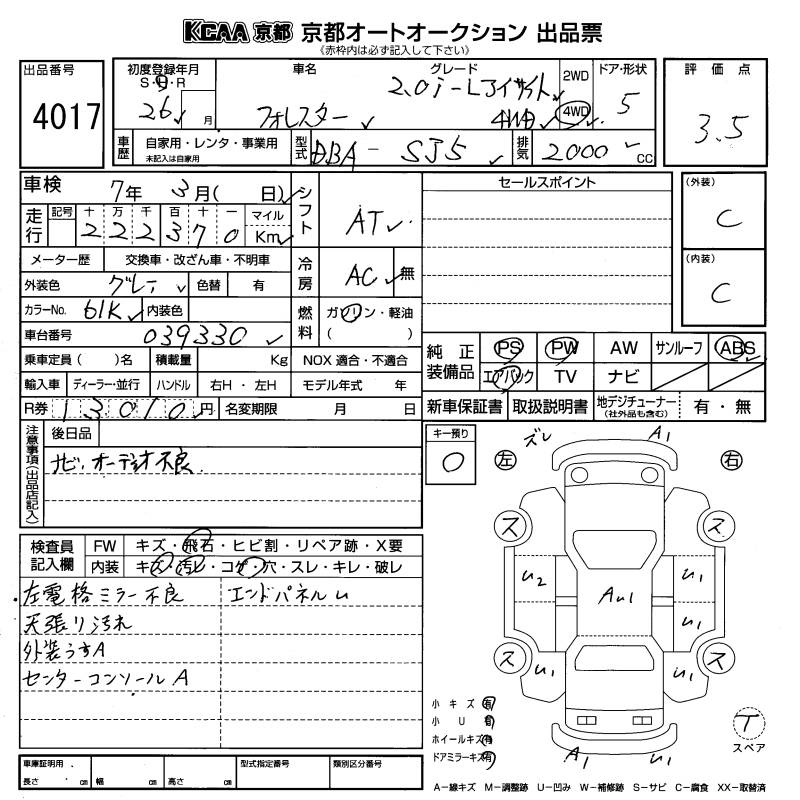 KCAA 京都 京都オートオークション 出品票
《赤枠内は必ず記入して下さい》
出品番号
4017
初度登録年月
S・H・R
26 月
車名
フォレスター
グレード
2.0i-Lアイサイト
4WD
2WD
4WD
ドア・形状
5
評価点
3.5
車歴
自家用・レンタ・事業用
未記入は自家用
型式
DBA-SJ5
排気
2000 CC
車検 7年 3月( 日)
走行
記号 十 万 千 百 十 一 マイル
2 2 2 3 7 0 Km
メーター歴 交換車・改ざん車・不明車
外装色 グレー 色替 有
カラーNo. 61K 内装色
車台番号 039330
乗車定員( )名 積載量 Kg
輸入車 ディーラー・並行 ハンドル 右H・左H
R券 13010円 名変期限 月 日
シフト AT
冷房 AC 無
燃料 ガソリン・軽油
( )
NOX 適合・不適合
モデル年式 年
セールスポイント
(外装)
C
(内装)
C
純正装備品
PS PW AW サンルーフ ABS
エアバック TV ナビ
新車保証書 取扱説明書 地デジチューナー(社外品も含む) 有・無
注意事項(出品店記入)
後日品
ナビ、オーデオ不良
キー預り
0
検査員記入欄
FW キズ・飛石・ヒビ割・リペア跡・X要
内装 キズ・汚レ・コゲ・穴・スレ・キレ・破レ
左電格ミラー不良 エンドパネルU
天張り汚れ
外装うすA
センターコンソールA
ズレ
A1
左
右
ス
ス
U2
U1
AU1
U1
ス
ス
U1
U1
A1
U1
小キズ 有
小U 有
ホイールキズ 有
ドアミラーキズ 有
T
スペア
A-線キズ M-調整跡 U-凹み W-補修跡 S-サビ C-腐食 XX-取替済
車庫証明用
長さ cm 幅 cm 高さ cm
型式指定番号
類別区分番号